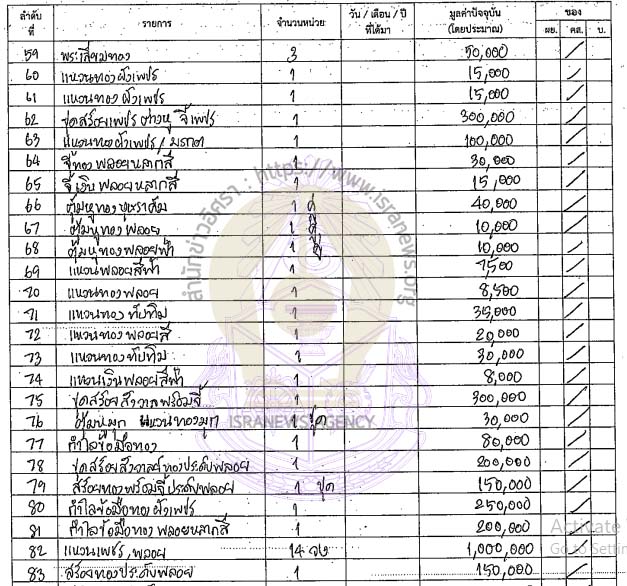 ลำดับ ที่ รายการ จำนวนหน่วย วัน / เดือน / ปี ที่ได้มา มูลค่าปัจจุบัน (โดยประมาณ) ของ ผย. คส. บ.
59 พระเลี่ยมทอง 3 50,000 /
60 แหวนทองฝังเพชร 1 15,000 /
61 แหวนทองฝังเพชร 1 15,000 /
62 ชุดสร้อยเพชร ต่างหู จี้เพชร 1 300,000 /
63 แหวนทองฝังเพชร / มรกต 1 100,000 /
64 จี้ทองพลอยหลากสี 1 30,000 /
65 จี้เงินพลอยหลากสี 1 15,000 /
66 ตุ้มหูทองบุษราคัม 1 คู่ 40,000 /
67 ตุ้มหูทองพลอย 1 คู่ 10,000 /
68 ตุ้มหูทองพลอยฟ้า 1 คู่ 10,000 /
69 แหวนพลอยสีฟ้า 1 7,500 /
70 แหวนทองพลอย 1 8,500 /
71 แหวนทองทับทิม 1 35,000 /
72 แหวนทองพลอยสี 1 20,000 /
73 แหวนทองทับทิม 1 30,000 /
74 แหวนเงินพลอยสีฟ้า 1 8,000 /
75 ชุดสร้อยสังวาลพร้อมจี้ 1 300,000 /
76 ตุ้มหูมุก แหวนทองมุก 1 ชุด 30,000 /
77 กำไลข้อมือทอง 1 80,000 /
78 ชุดสร้อยสังวาลย์ทองประดับพลอย 1 200,000 /
79 สร้อยทองพร้อมจี้ประดับพลอย 1 ชุด 150,000 /
80 กำไลข้อมือทองฝังเพชร 1 250,000 /
81 กำไลข้อมือทองพลอยหลากสี 1 200,000 /
82 แหวนเพชร, พลอย 14 วง 1,000,000 /
83 สร้อยทองประดับพลอย 1 150,000 /
สำนักข่าวอิศรา : https://www.isranews.org
ISRANEWS AGENCY
Activate
Go to Settin